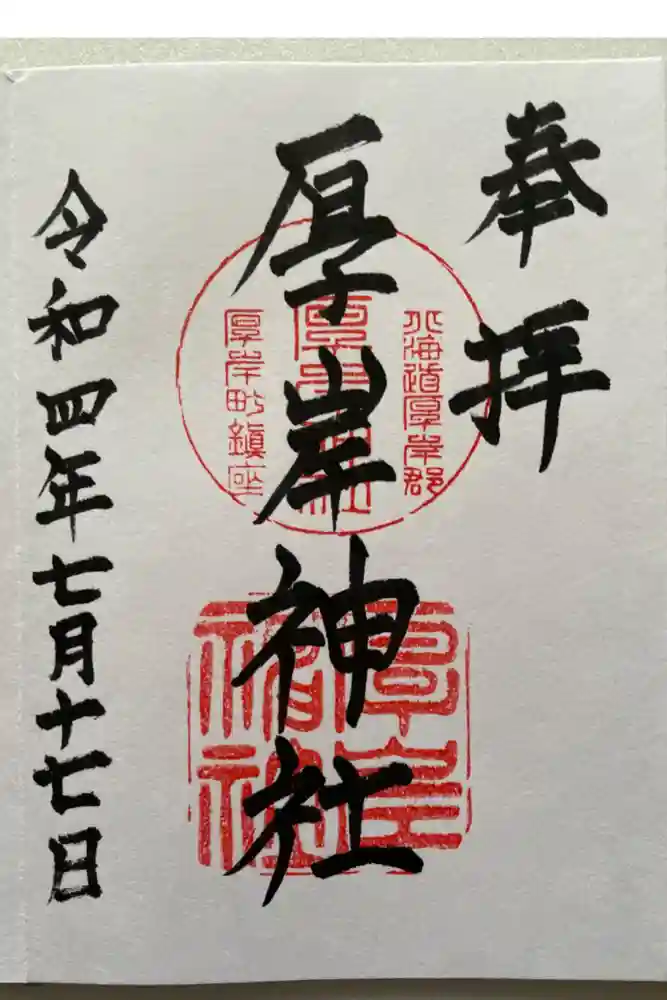 奉拝
厚岸神社
北海道厚岸郡
厚岸神社
厚岸町鎮座
厚岸神社
令和四年七月十七日